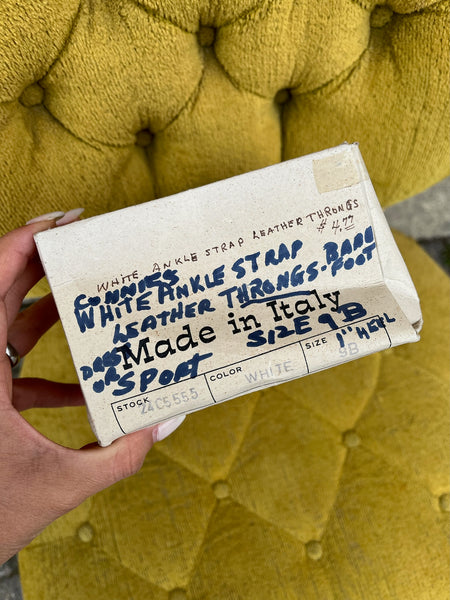 WHITE ANKLE STRAP LEATHER THRONGS
$4.77
CONNIES
WHITE ANKLE STRAP BARE
LEATHER THRONGS. FOOT
Made in Italy
SIZE 9B
DRESS
OR SPORT
1" HEEL
STOCK 24C5555
COLOR WHITE
SIZE 9B